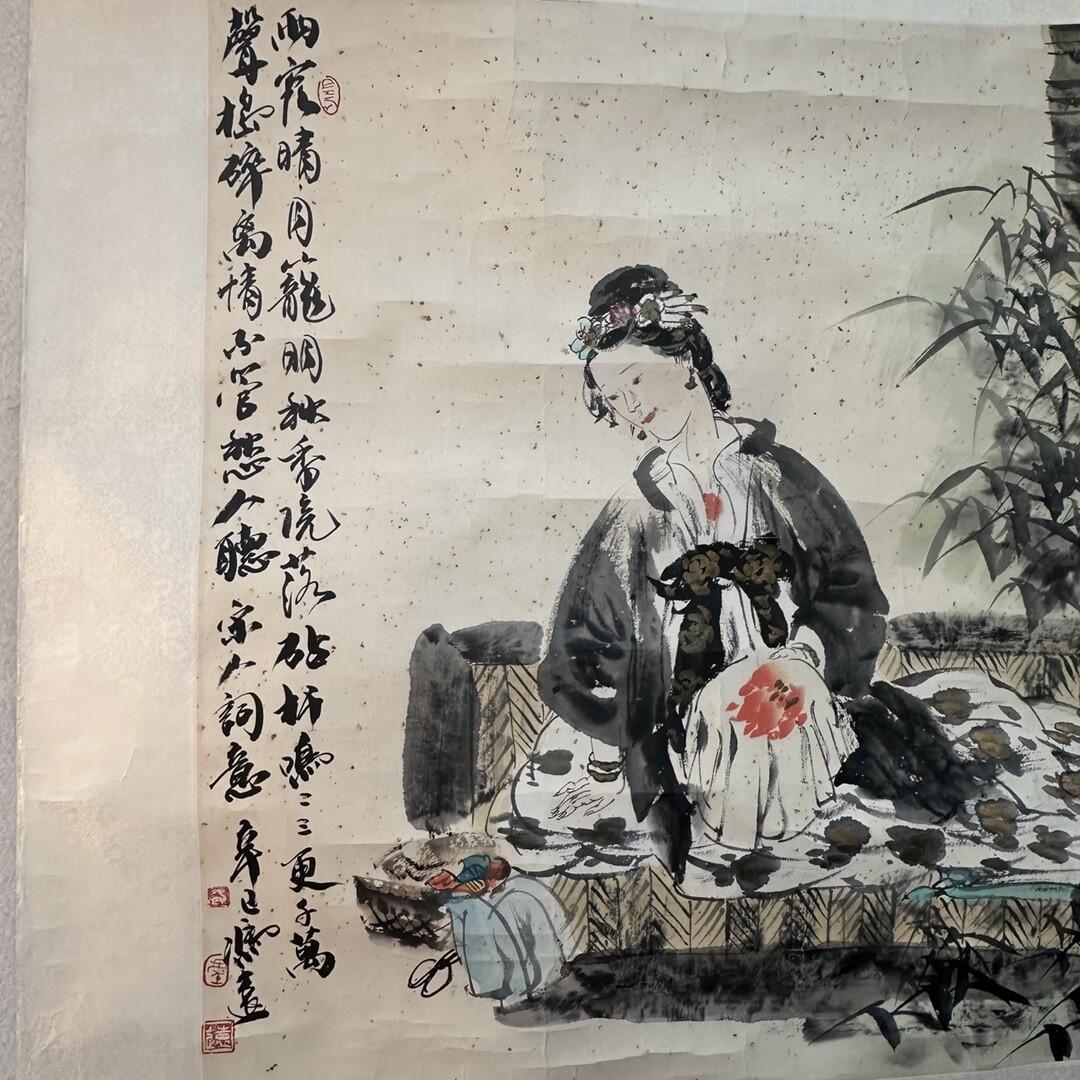 雨晴月籠明秋香院落砧杵鳴二三更千萬
聲搗碎离情不管愁人聽宋人詞意辛巳遠